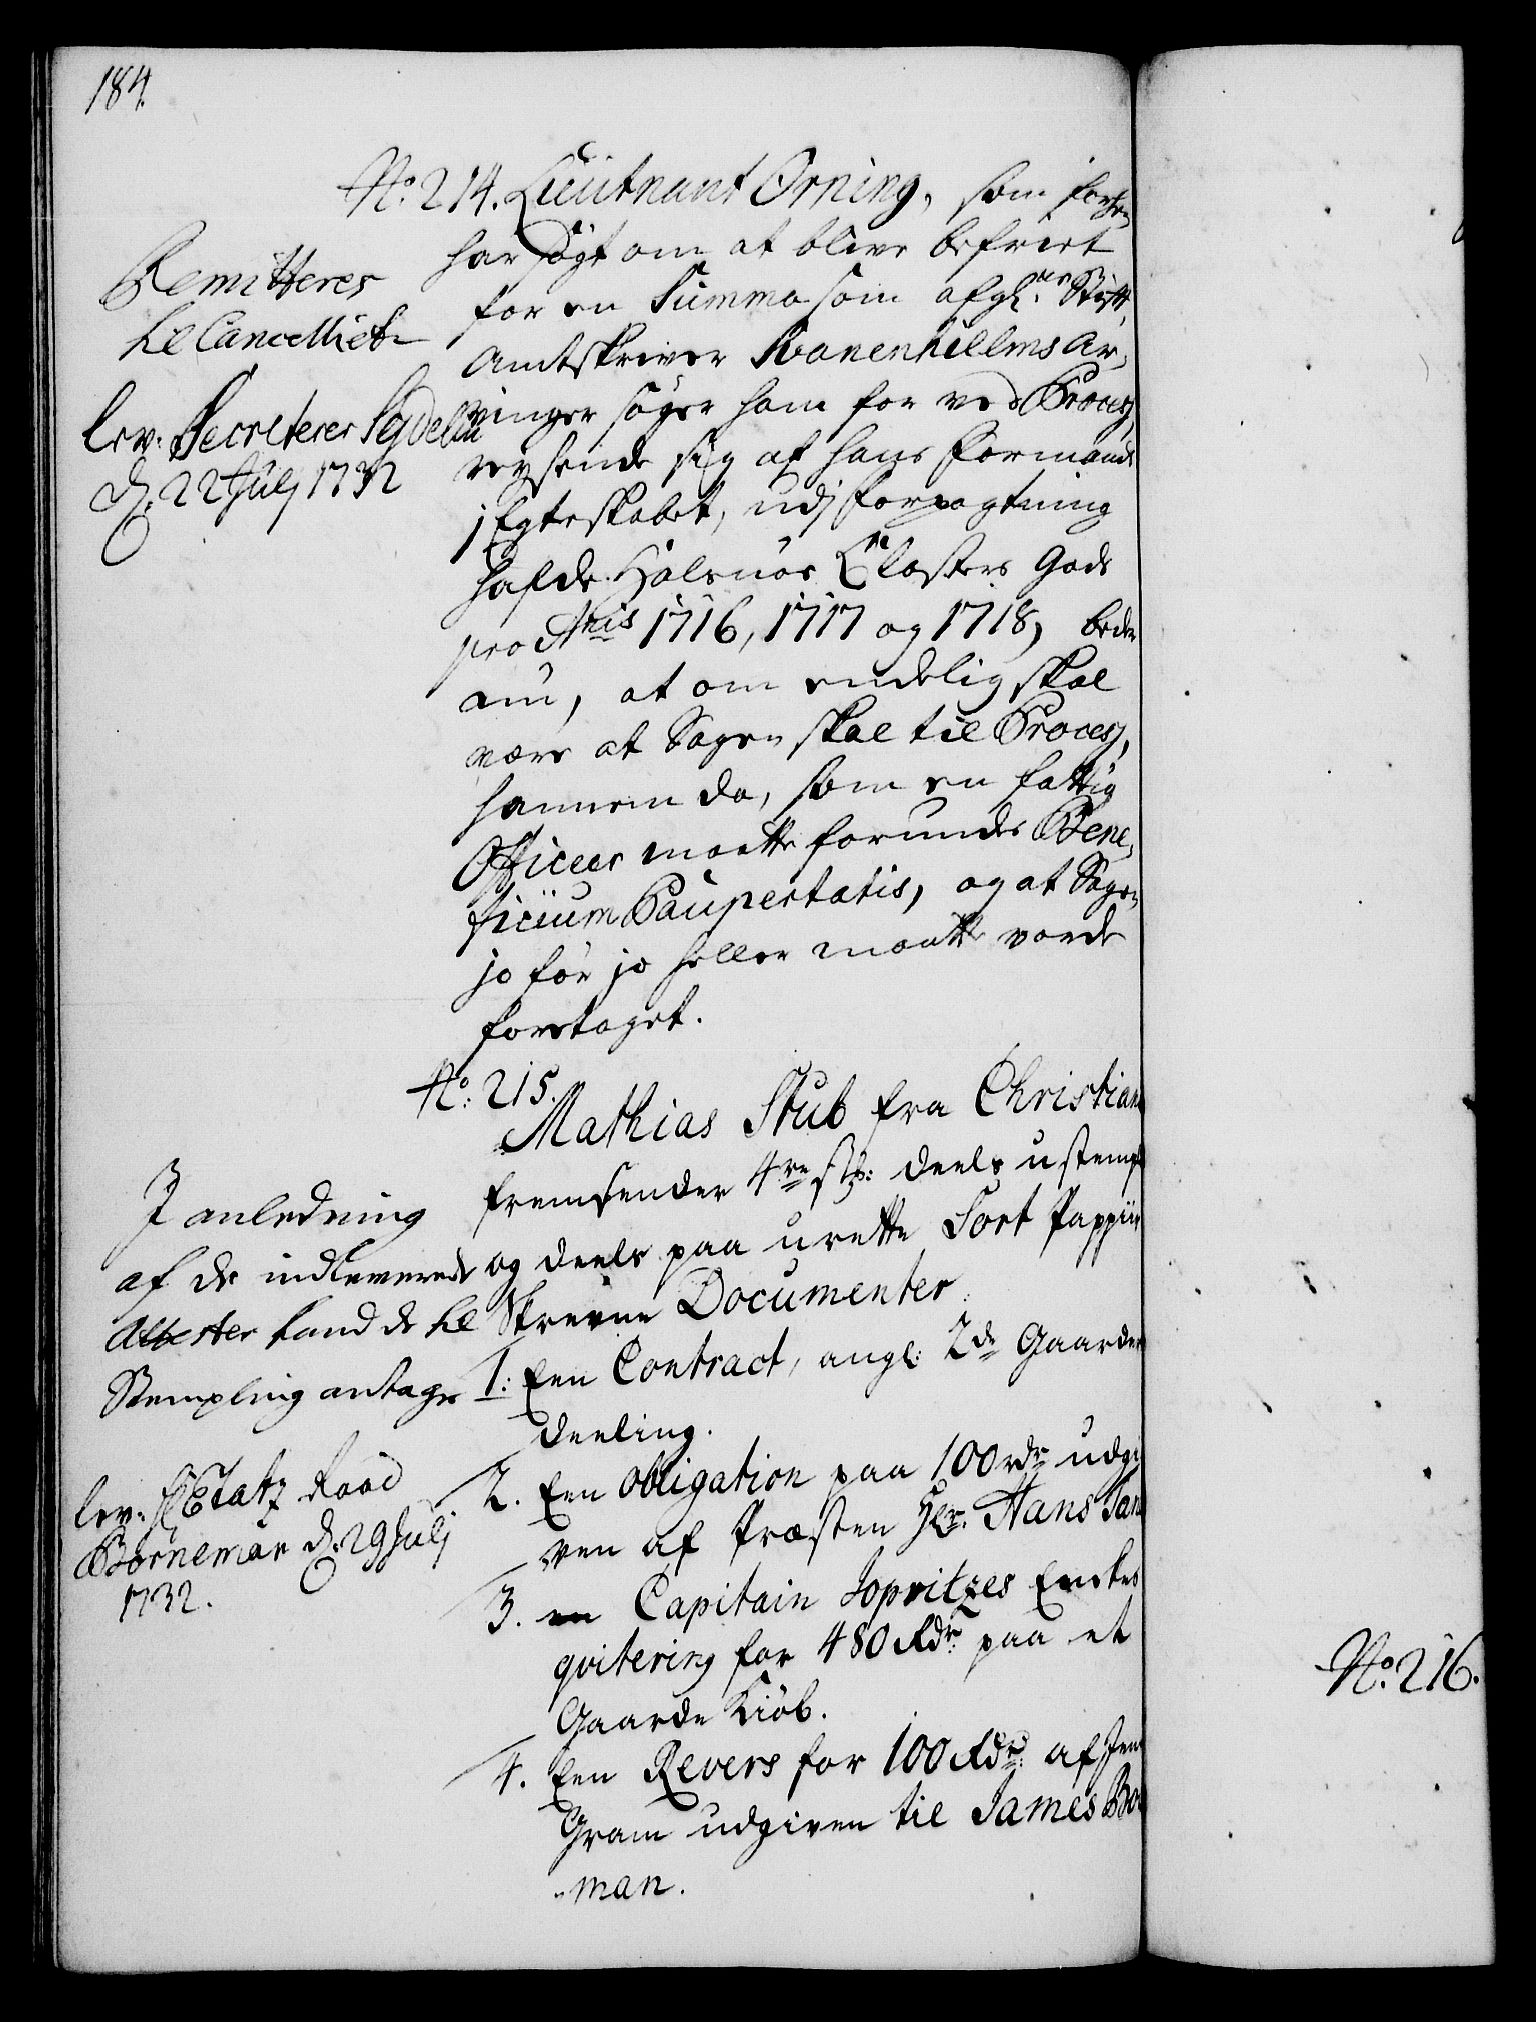 184.
No. 214. Lieutnant Orning, som forhen
har søgt om at blive befriet
for en Summa som afgl. Stift
Amtskriver Svanenhielms Ar-
vinger søger ham for ved Process,
reysende sig af hans Formands
i Egteskabet, udj Forpagtning
hafde Halsnøe Closters Gods
pro Anis 1716, 1717 og 1718, beder
nu, at om endelig skal
være at Sagen skal til Process,
hannem da, som en fattig
Officeer maatte forundes Bene-
ficium Paupertatis, og at Sagen
jo før jo heller maatte vorde
foretaget.
Remitteres
til Cancelliet
lev. Secreterer Seydelin
d. 22 Julj 1732
No. 215.
Mathias Stub fra Christian
fremsender 4re st: deels ustemp
og deels paa urette Sort Pappiir
Skrevne Documenter.
1. Een Contract, angl: 2de Gaarders
deeling.
2. Een Obligation paa 100 rdr udgi
ven af Præsten Hr. Hans Tan
3. Capitain Sopritzes Enckes
qvitering for 480 Rdr. paa et
Gaarde Kiøb.
4. Een Revers for 100 Rdr. af Jen
Gram udgiven til James Bo
-man.
I anledning
af de indleverede
Attester kand de til
Stempling antages
lev. H Etatz Raad
Borneman d. 29 Julj
1732.
No. 216.